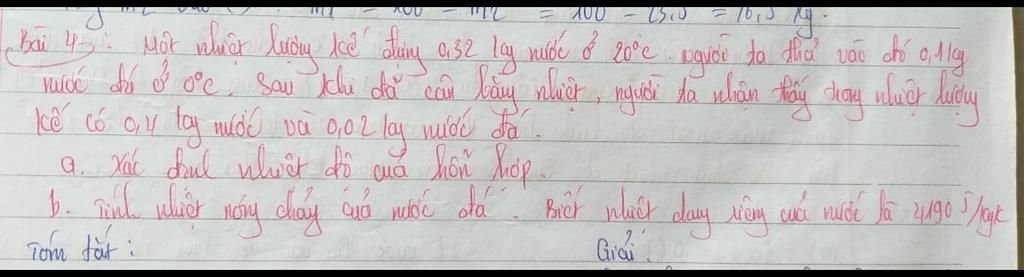 m2 = 100 - m2 = 100 - 23,5 = 76,5 kg.
Bài 43: Một nhiệt lượng kế đựng 0,32 kg nước ở 20°C. người ta thả vào đó 0,1 kg
nước đá ở 0°C. Sau khi đã cân bằng nhiệt, người ta nhận thấy trong nhiệt lượng
kế có 0,4 kg nước và 0,02 kg nước đá.
a. Xác định nhiệt độ của hỗn hợp.
b. Tính nhiệt nóng chảy của nước đá. Biết nhiệt dung riêng của nước là 4190 J/kgK
Tóm tắt: Giải: